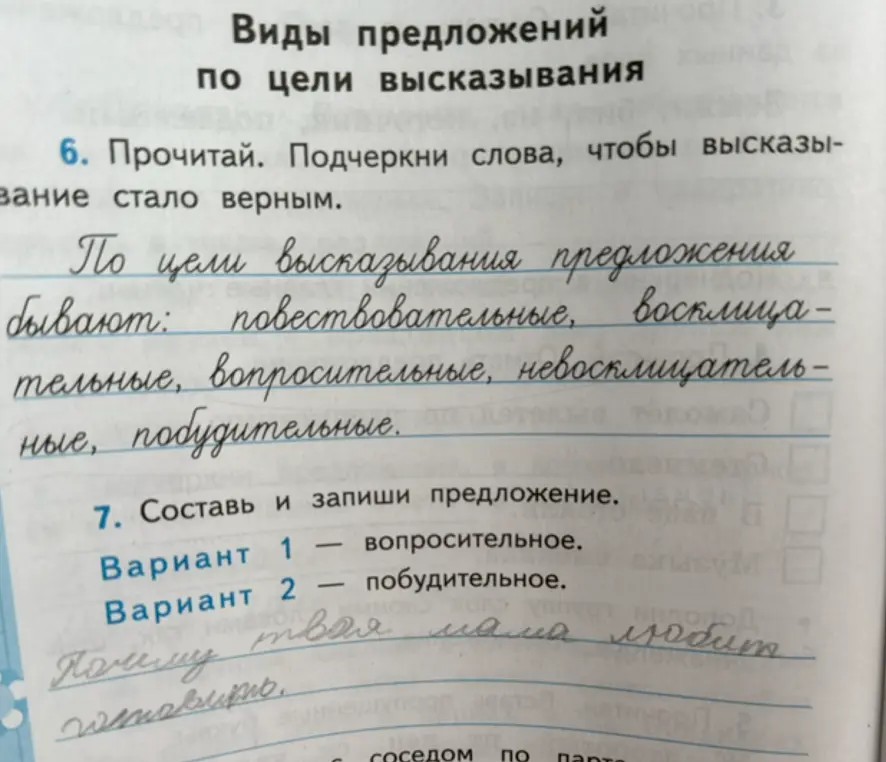 Виды предложений
по цели высказывания
6. Прочитай. Подчеркни слова, чтобы высказы-
вание стало верным.
По цели высказывания предложения
бывают: повествовательные, восклица-
тельные, вопросительные, невосклицатель-
ные, побудительные.
7. Составь и запиши предложение.
Вариант 1 — вопросительное.
Вариант 2 — побудительное.
Почему твоя мама любит
готовить.
с соседом по парте